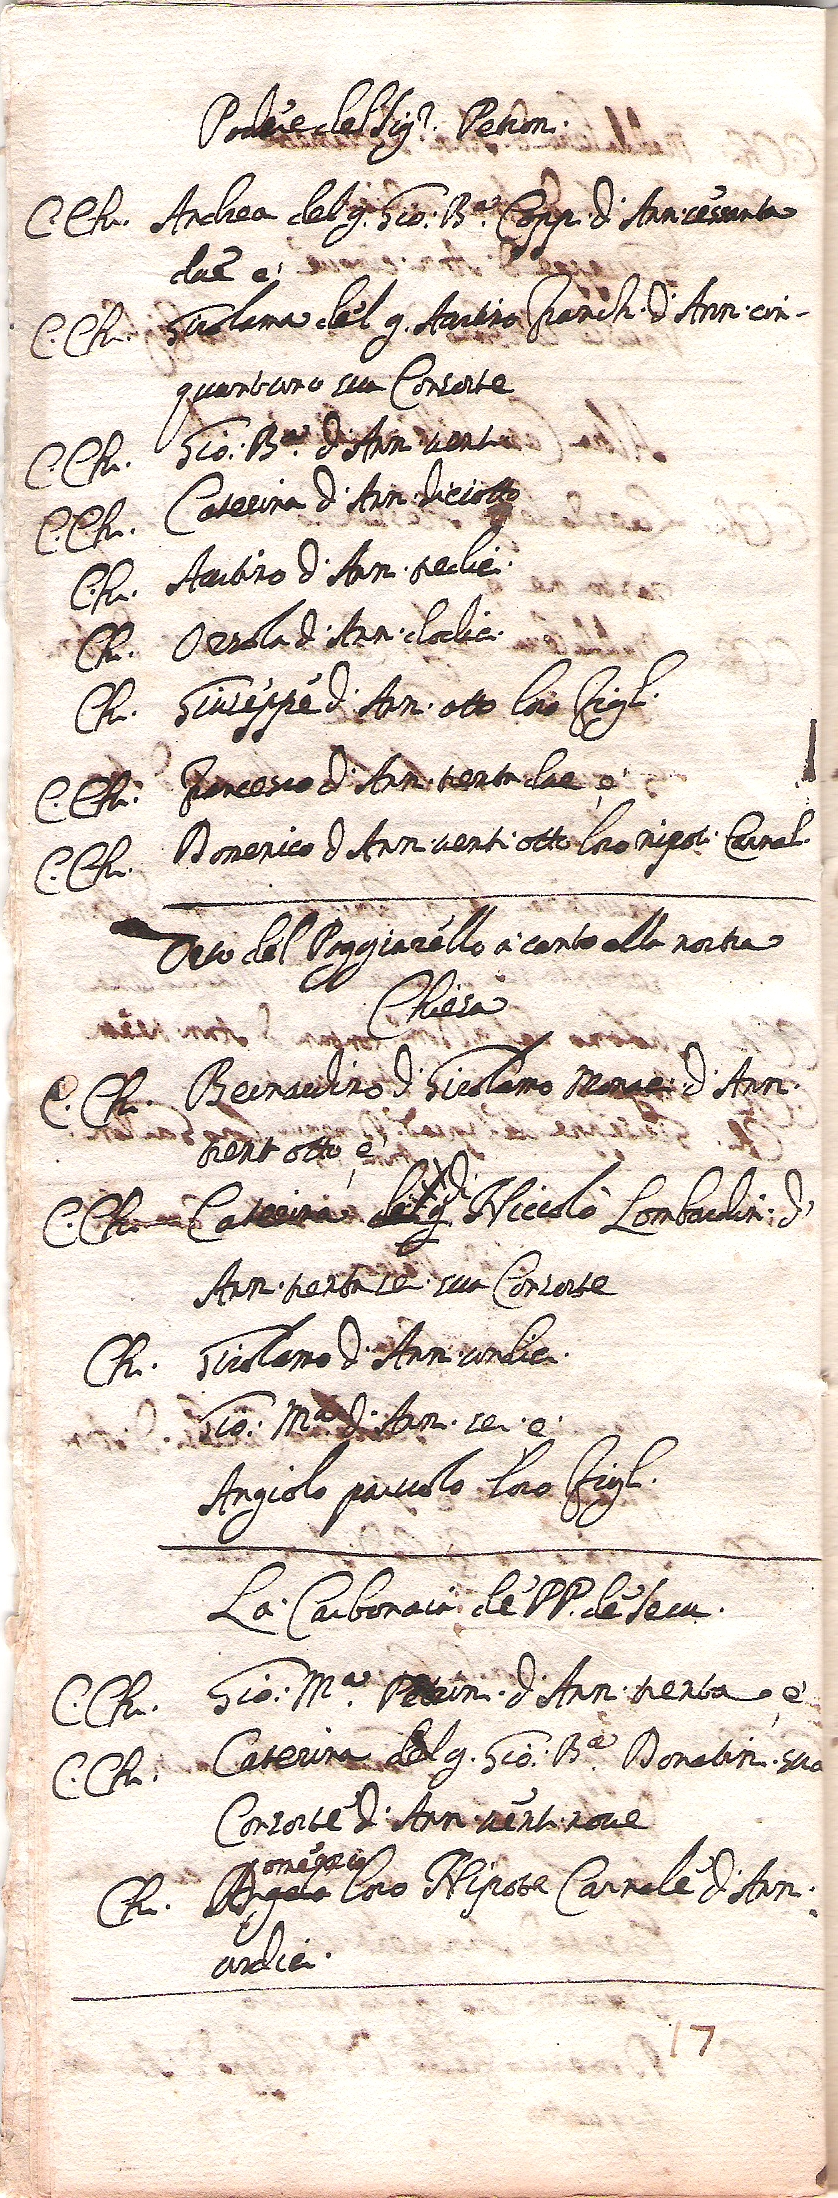 Podere del Sig.r Petron.
C. Ch. Andrea del q. Gio: B.a Copp. d'Ann. sessanta
due e
C. Ch. Girolama del q. Santino Franch. d'Ann. cin-
quantuno sua Consorte
C. Ch. Gio: B.a d'Ann. venti
C. Ch. Caterina d'Ann. diciotto
Ch. Santino d'Ann. tredic.
Ch. Orsola d'Ann. dodic.
Ch. Giuseppe d'Ann. otto loro Figl.
C. Ch. Francesco d'Ann. trenta due, e
C. Ch. Domenico d'Ann. venti otto loro nipot. Carnal.
Orto del Poggiarello a canto alla nostra
Chiesa
C. Ch. Bernardino di Girolamo Monac. d'Ann.
trent otto, e
C. Ch. Caterina di Niccolò Lombardin. d'
Ann. trenta sei sua Consorte
Ch. Girolamo d'Ann. undic.
Gio: M.a d'Ann. sei e
Angiolo piccolo loro Figl.
La Carbonaia de PP. de Servi.
C. Ch. Gio: M.a Petrin. d'Ann. trenta, e
C. Ch. Caterina del q. Gio: B.a Donatin. sua
Consorte d'Ann. venti nove
Ch. loro Nipote Carnale d'Ann.
undic.
17